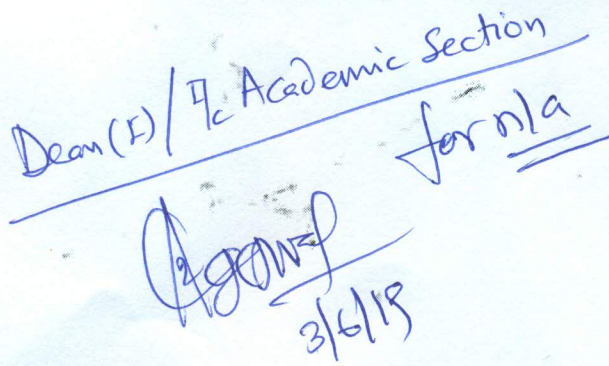 Dean (I) / I/c Academic Section
for n/a
3/6/19